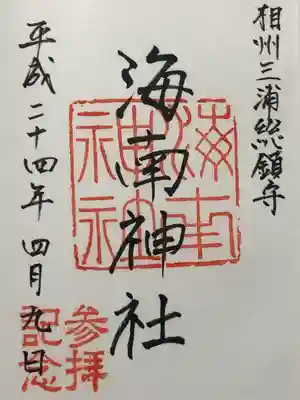 相州三浦総鎮守
海南神社
平成二十四年 四月九日
海南神社
参拝
記念